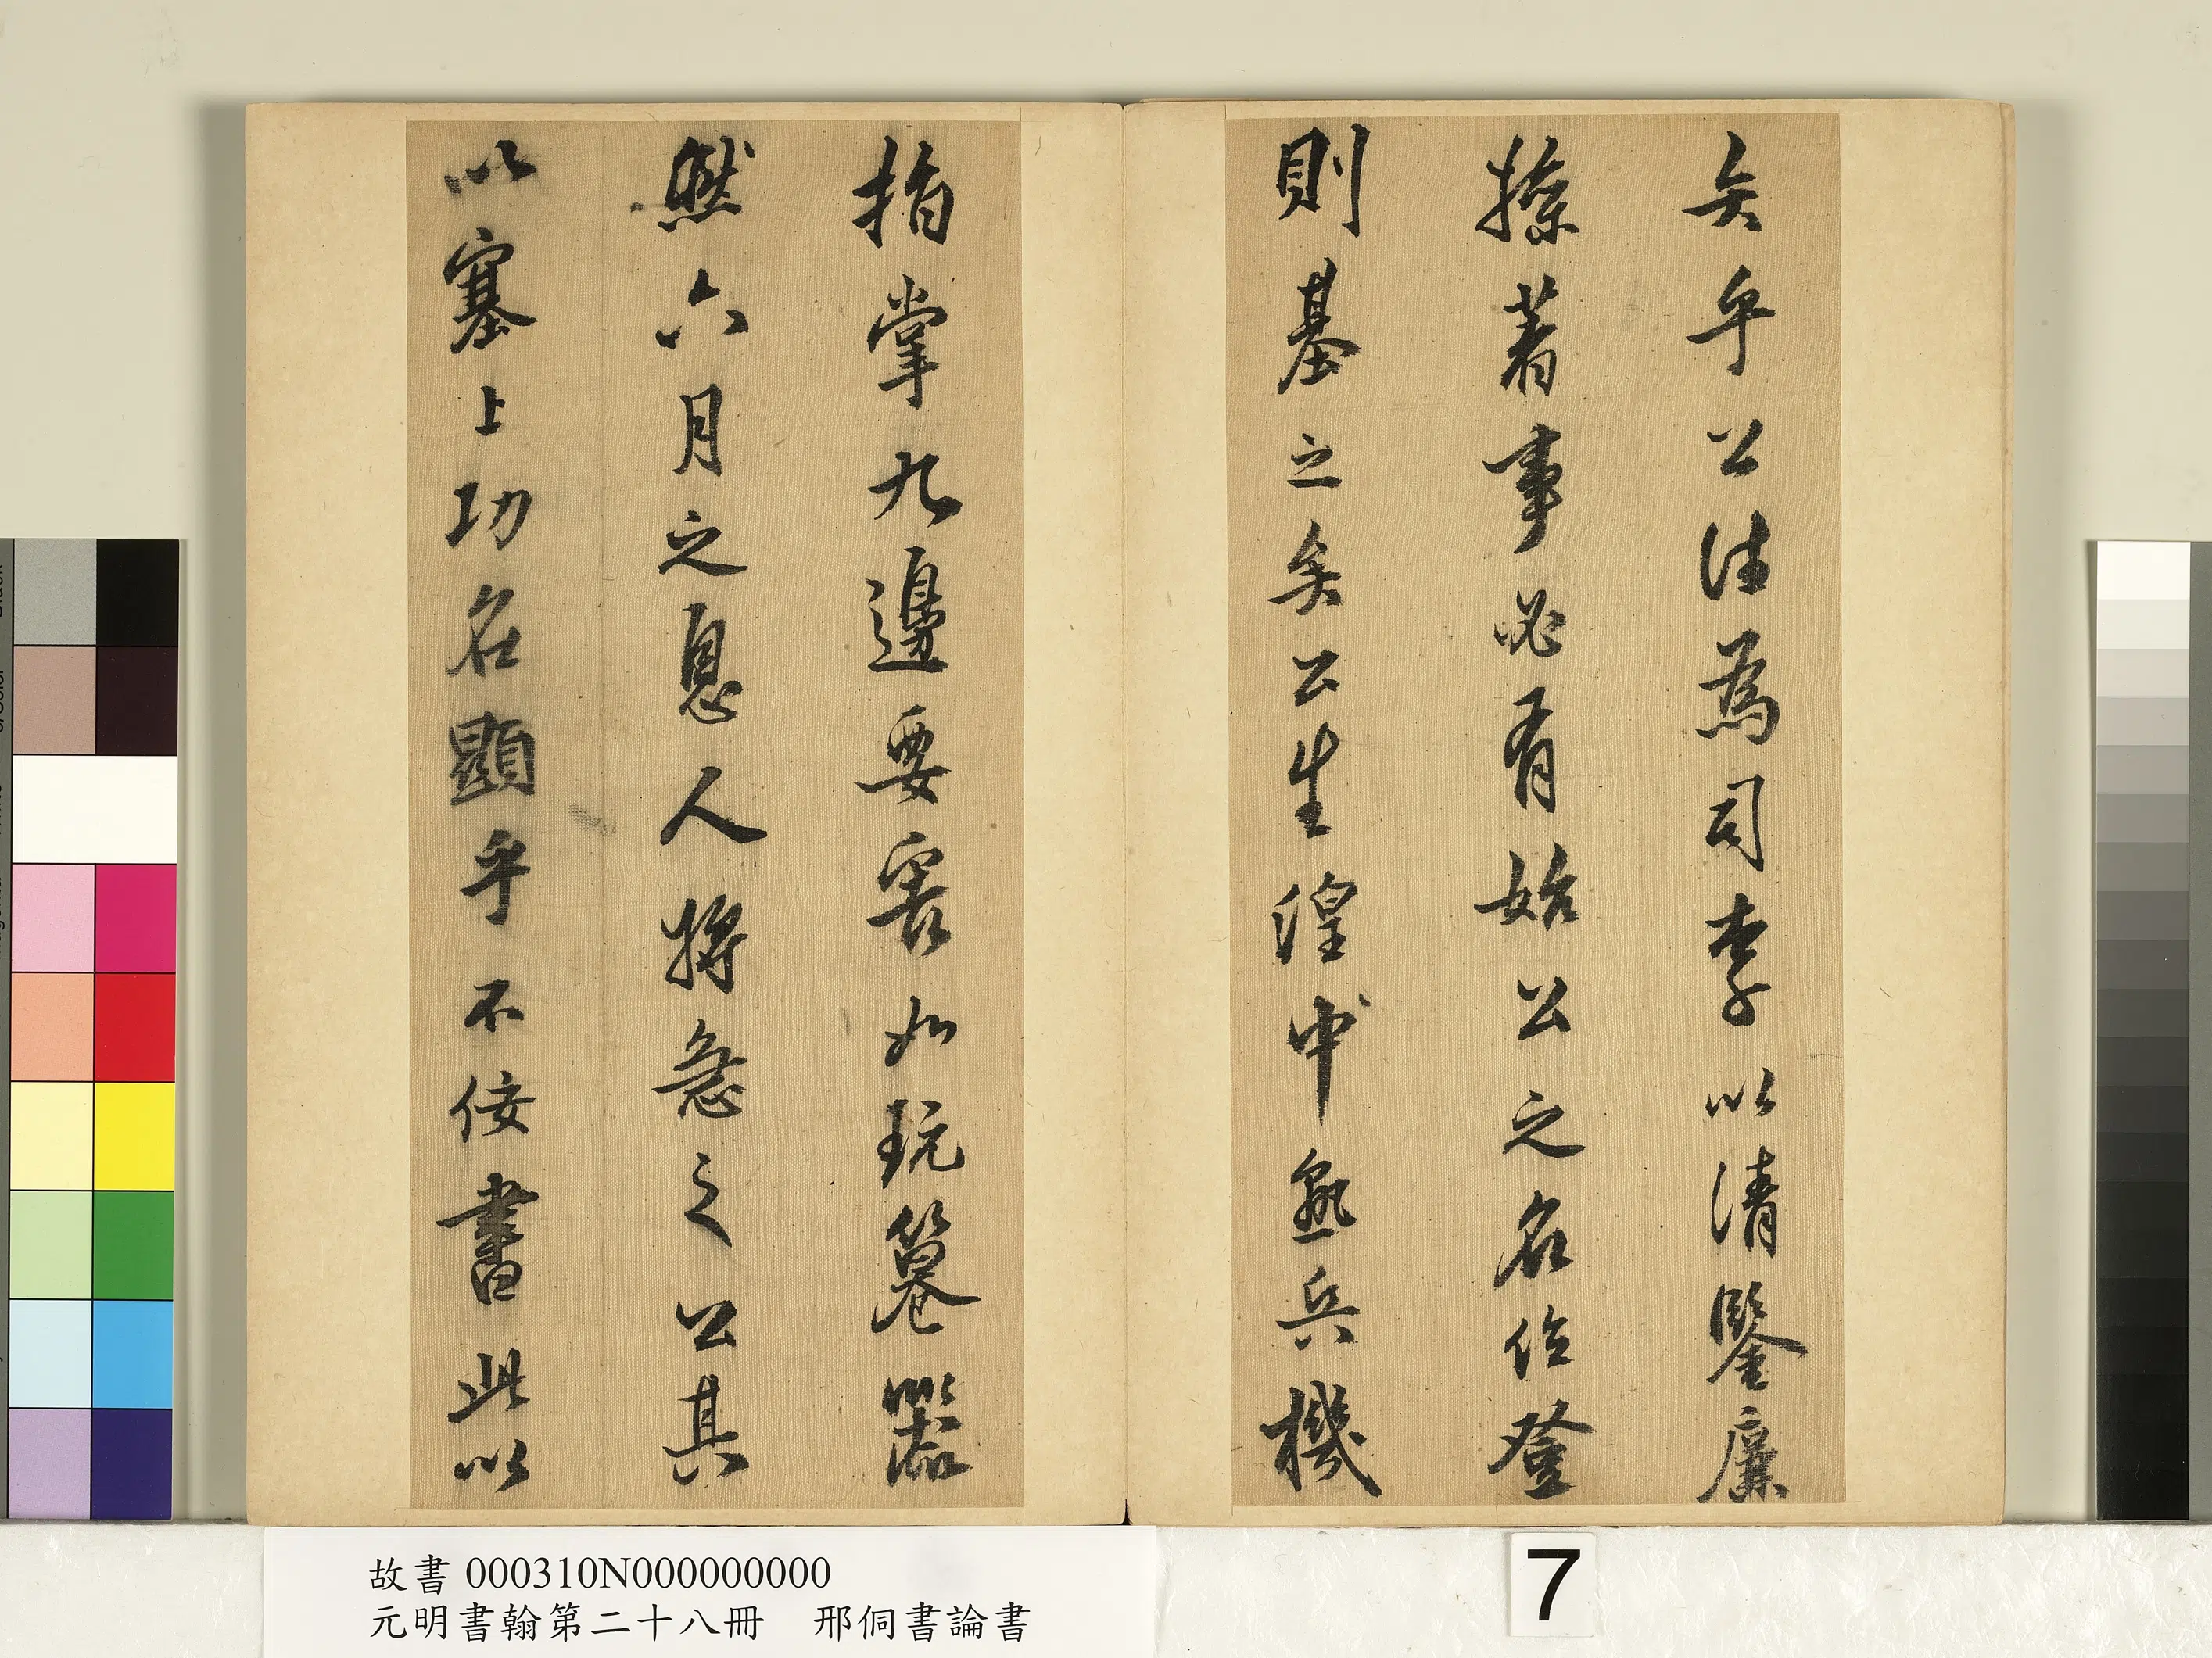 矣乎公法為司李以清鑒廉
操著事必有始公之名位登
則基之矣公生湟中熟兵機
指掌九邊要害如玩篹器
然六月之息人將急之公其
以塞上功名顯乎不佞書此以
故書 000310N000000000
元明書翰第二十八冊 邢侗書論書
7